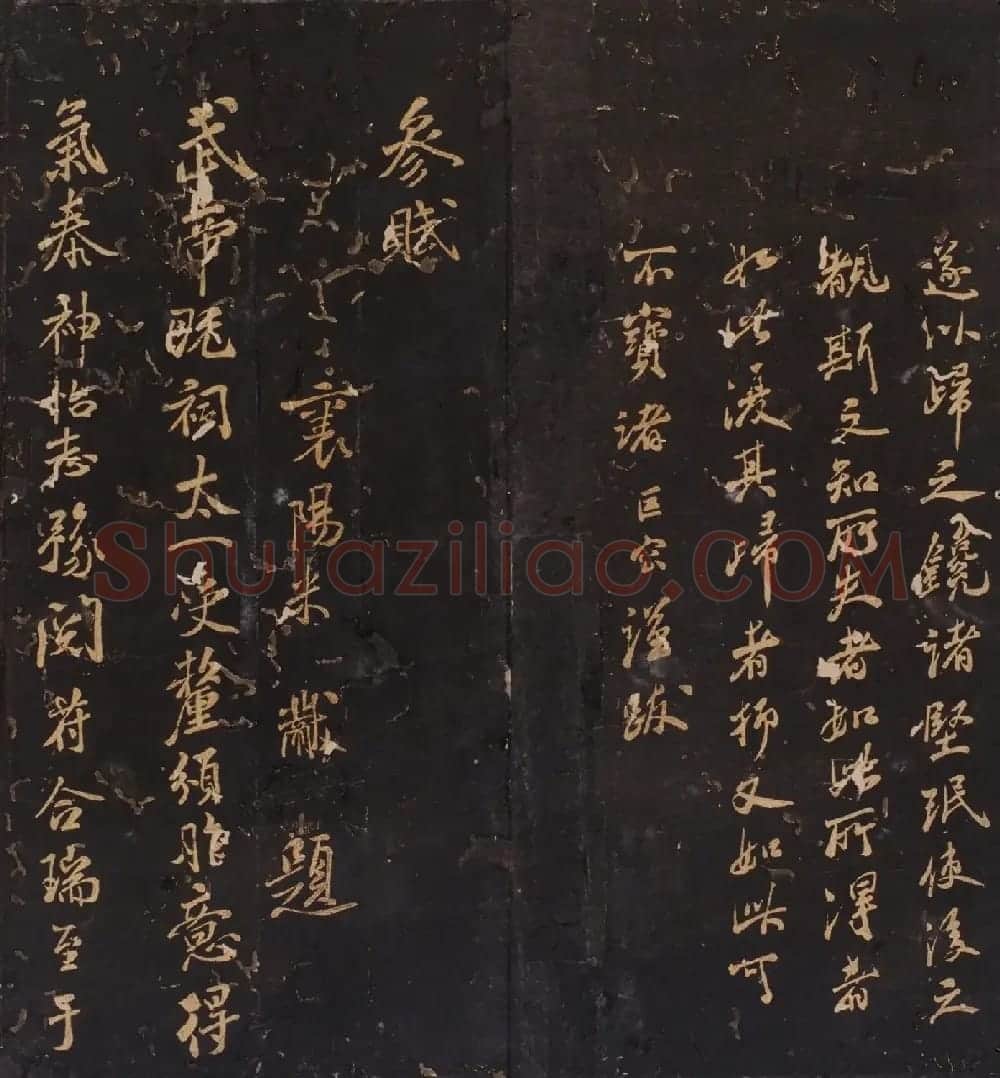 遂以歸之鐫諸堅珉使後之
觀斯文知所失者如此所得者
如此後其歸者抑又如此可
不寶諸 巨宗謹跋
參賦
襄陽米黻 題
武帝既祠太一受釐頒胙意得
氣泰神怡志豫閱符合瑞至于
Shufaziliao.COM